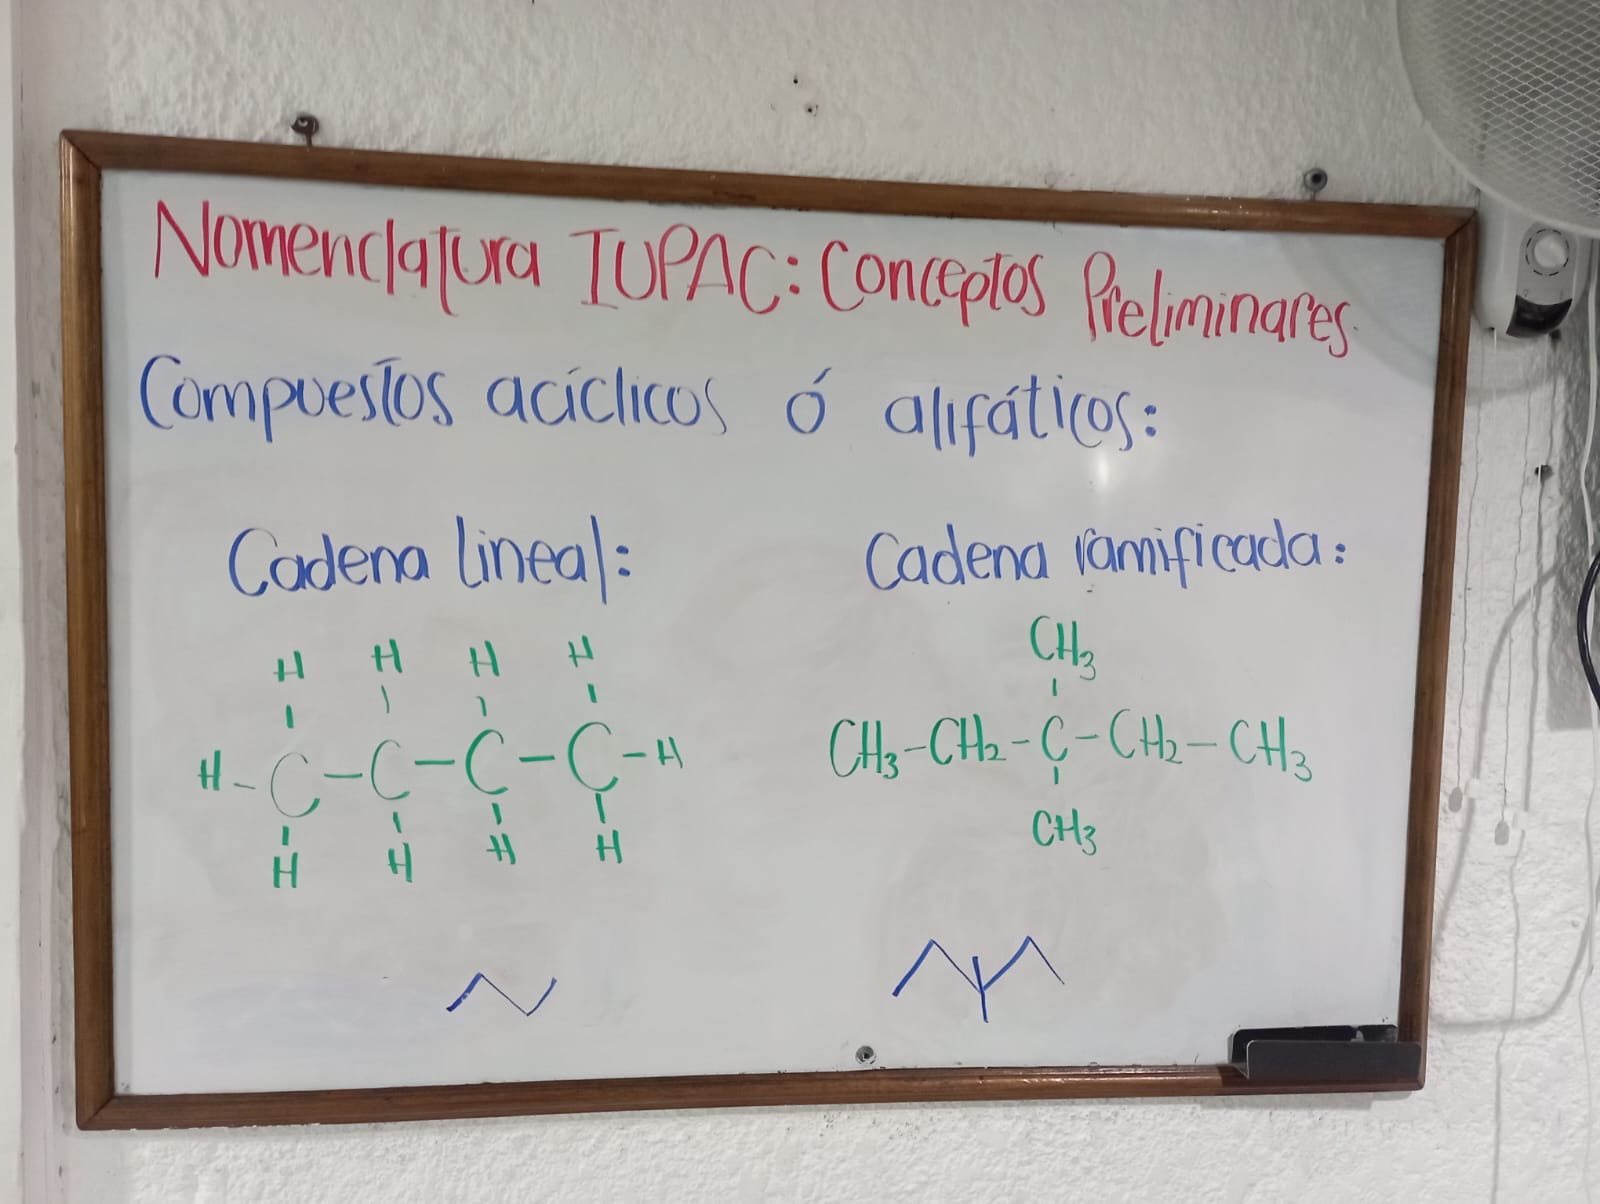 Nomenclatura IUPAC: Conceptos Preliminares.
Compuestos acíclicos ó alifáticos:
Cadena lineal:
H H H H
H-C-C-C-C-H
H H H H
Cadena ramificada:
CH3
CH3-CH2-C-CH2-CH3
CH3